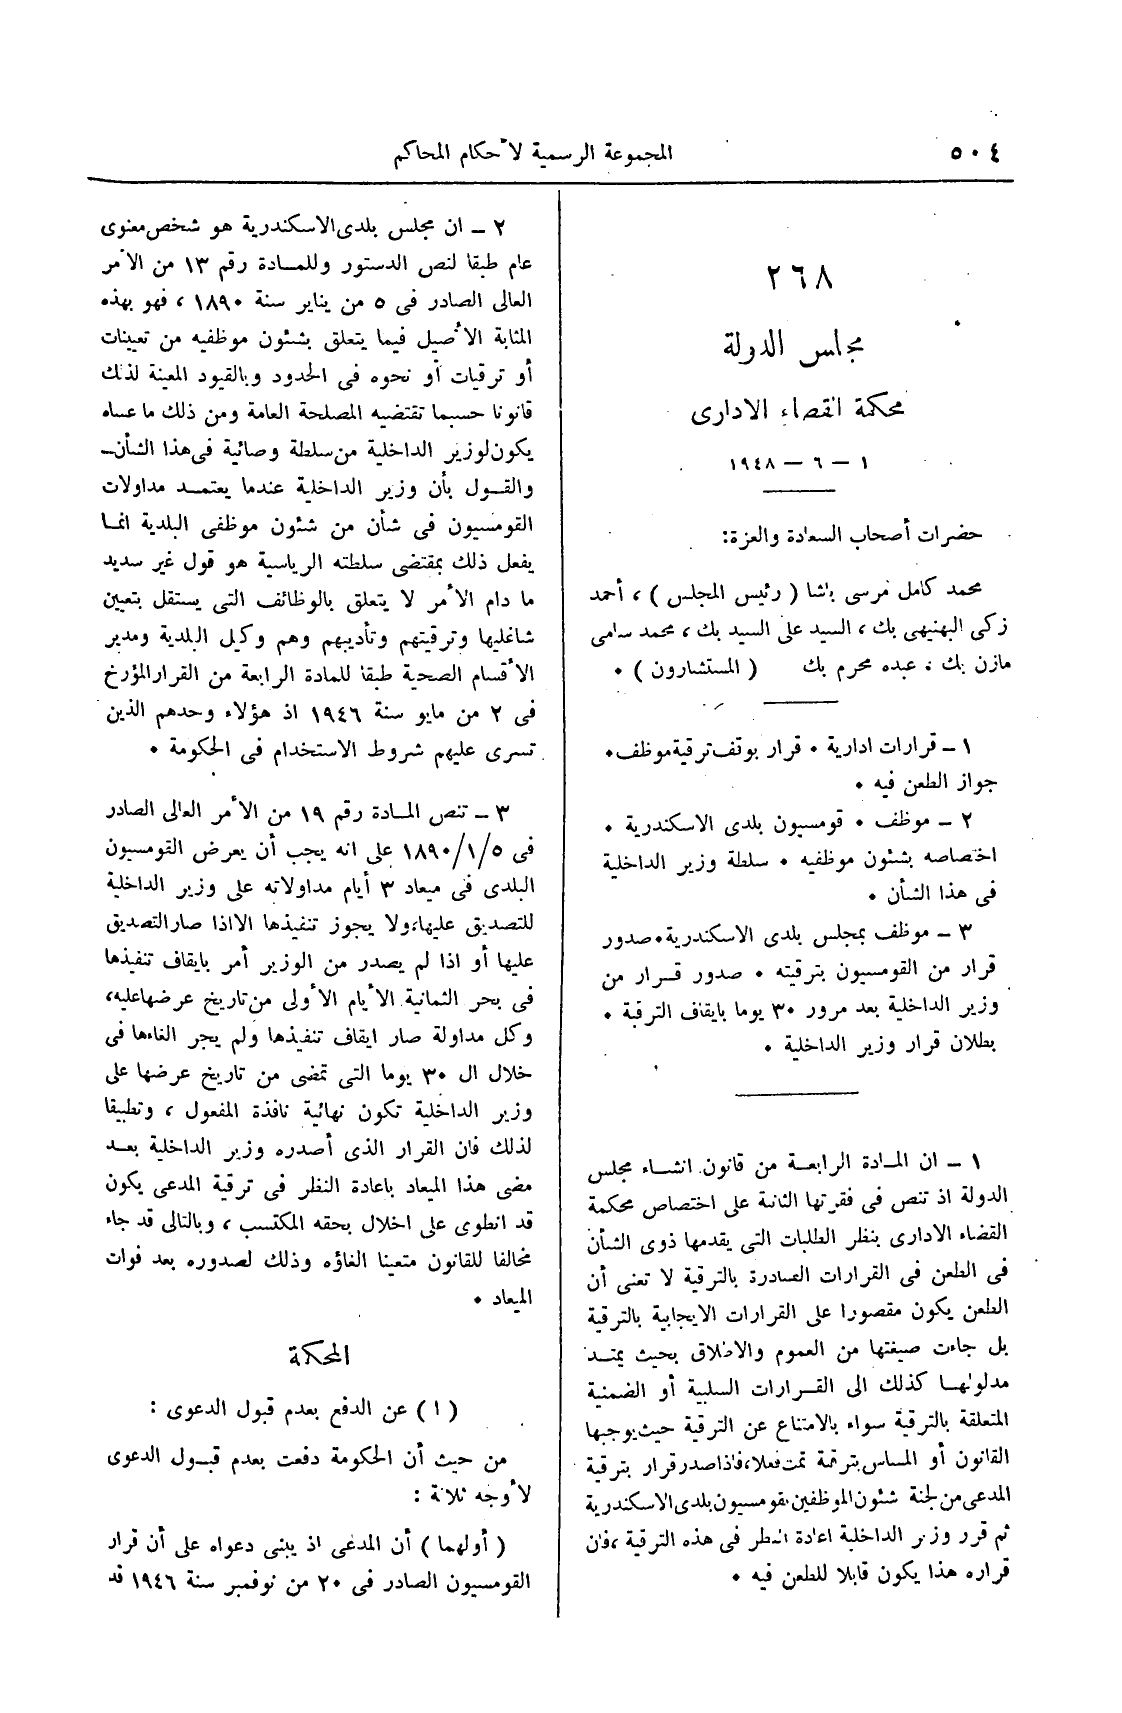 ٥٠٤
المجموعة الرسمية لأحكام المحاكم
٢٦٨
مجلس الدولة
محكمة القضاء الادارى
١ – ٦ – ١٩٤٨
حضرات أصحاب السعادة والعزة:
محمد كامل مرسى باشا ( رئيس المجلس ) ، أحمد
زكى البهنيهى بك ، السيد على السيد بك ، محمد سامى
مازن بك ، عبده محرم بك ( المستشارون ) .
١ – قرارات ادارية . قرار بوقف ترقية موظف .
جواز الطعن فيه .
٢ – موظف . قومسيون بلدى الاسكندرية .
اختصاصه بشئون موظفيه . سلطة وزير الداخلية
فى هذا الشأن .
٣ – موظف بمجلس بلدى الاسكندرية . صدور
قرار من القومسيون بترقيته . صدور قرار من
وزير الداخلية بعد مرور ٣٠ يوما بايقاف الترقية .
بطلان قرار وزير الداخلية .
١ – ان المادة الرابعة من قانون انشاء مجلس
الدولة اذ تنص فى فقرتها الثانية على اختصاص محكمة
القضاء الادارى بنظر الطلبات التى يقدمها ذوى الشأن
فى الطعن فى القرارات الصادرة بالترقية لا تعنى أن
الطعن يكون مقصورا على القرارات الايجابية بالترقية
بل جاءت صيغتها من العموم والاطلاق بحيث يمتد
مدلولها كذلك الى القرارات السلبية أو الضمنية
المتعلقة بالترقية سواء بالامتناع عن الترقية حيث يوجبها
القانون أو المساس بترقية تمت فعلا، فاذا صدر قرار بترقية
المدعى من لجنة شئون الموظفين بقومسيون بلدى الاسكندرية
ثم قرر وزير الداخلية اعادة النظر فى هذه الترقية ، فان
قراره هذا يكون قابلا للطعن فيه .
٢ – ان مجلس بلدى الاسكندرية هو شخص معنوى
عام طبقا لنص الدستور وللمادة رقم ١٣ من الأمر
العالى الصادر فى ٥ من يناير سنة ١٨٩٠ ، فهو بهذه
المثابة الأصيل فيما يتعلق بشئون موظفيه من تعيينات
أو ترقيات أو نحوه فى الحدود وبالقيود المعينة لذلك
قانونا حسبما تقتضيه المصلحة العامة ومن ذلك ما عساه
يكون لوزير الداخلية من سلطة وصائية فى هذا الشأن –
والقول بأن وزير الداخلية عندما يعتمد مداولات
القومسيون فى شأن من شئون موظفى البلدية انما
يفعل ذلك بمقتضى سلطته الرياسية هو قول غير سديد
ما دام الأمر لا يتعلق بالوظائف التى يستقل بتعيين
شاغليها وترقيتهم وتأديبهم وهم وكيل البلدية ومدير
الأقسام الصحية طبقا للمادة الرابعة من القرار المؤرخ
فى ٢ من مايو سنة ١٩٤٦ اذ هؤلاء وحدهم الذين
تسرى عليهم شروط الاستخدام فى الحكومة .
٣ – تنص المادة رقم ١٩ من الأمر العالى الصادر
فى ١٨٩٠/١/٥ على انه يجب أن يعرض القومسيون
البلدى فى ميعاد ٣ أيام مداولاته على وزير الداخلية
للتصديق عليها، ولا يجوز تنفيذها الا اذا صار التصديق
عليها أو اذا لم يصدر من الوزير أمر بايقاف تنفيذها
فى بحر الثمانية الأيام الأولى من تاريخ عرضها عليه،
وكل مداولة صار ايقاف تنفيذها ولم يجر الغاءها فى
خلال ال ٣٠ يوما التى تمضى من تاريخ عرضها على
وزير الداخلية تكون نهائية نافذة المفعول ، وتطبيقا
لذلك فان القرار الذى أصدره وزير الداخلية بعد
مضى هذا الميعاد باعادة النظر فى ترقية المدعى يكون
قد انطوى على اخلال بحقه المكتسب ، وبالتالى قد جاء
مخالفا للقانون متعينا الغاؤه وذلك لصدوره بعد فوات
الميعاد .
المحكمة
( ا ) عن الدفع بعدم قبول الدعوى :
من حيث أن الحكومة دفعت بعدم قبول الدعوى
لأوجه ثلاثة :
( أولهما ) أن المدعى اذ يبنى دعواه على أن قرار
القومسيون الصادر فى ٢٠ من نوفمبر سنة ١٩٤٦ قد